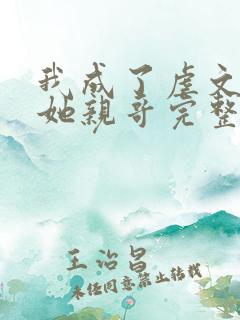 我成了虐文
她亲哥完整
王治昌
未经同意禁止转载